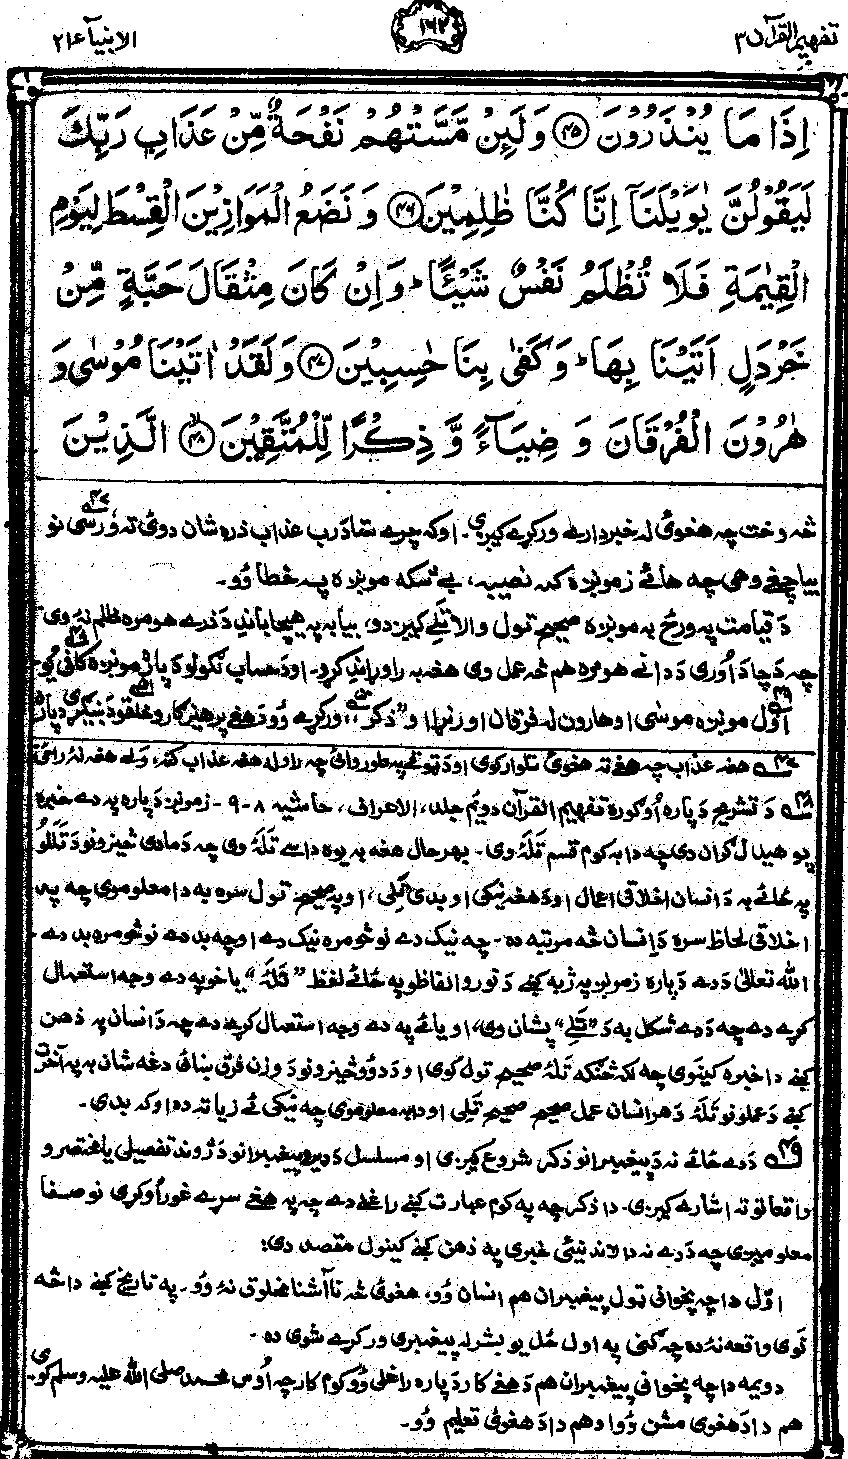 تفهیم القرآن ۳ ۱۶۲ الانبیآء ۲۱
اِذَا مَا يُنْذَرُوْنَ ﴿۴۵﴾ وَلَئِنْ مَّسَّتْهُمْ نَفْحَةٌ مِّنْ عَذَابِ رَبِّكَ
لَيَقُوْلُنَّ يٰوَيْلَنَآ اِنَّا كُنَّا ظٰلِمِيْنَ ﴿۴۶﴾ وَ نَضَعُ الْمَوَازِيْنَ الْقِسْطَ لِيَوْمِ
الْقِيٰمَةِ فَلَا تُظْلَمُ نَفْسٌ شَيْئًا ؕ وَاِنْ كَانَ مِثْقَالَ حَبَّةٍ مِّنْ
خَرْدَلٍ اَتَيْنَا بِهَا ؕ وَكَفٰى بِنَا حٰسِبِيْنَ ﴿۴۷﴾ وَلَقَدْ اٰتَيْنَا مُوْسٰى وَ
هٰرُوْنَ الْفُرْقَانَ وَ ضِيَآءً وَّ ذِكْرًا لِّلْمُتَّقِيْنَ ﴿۴۸﴾ الَّذِيْنَ
څه وخت چه هغوئ له خبردارے ورکړے کیږی۔ اوکه چرے ستا دَ رب عذاب ذره شان دوئ ته وَرسی نو
بیا چغے وهی چه هائے زمونږه کم نصیبیه، بے شکه مونږه پسه خطا وُو۔
دَ قیامت په ورځ به مونږه صحیح تول والا تلے کیږدو، بیا به په هیچا باندِ دَ ذرے هومره ظلم نهٔ وی
چه دَ چا دَ اُوری دَ دانے هومره هم څه عمل وی هغه به راوړاندِ کړو۔ اودَ حساب کولو دَ پاره مونږه کافی یو
اوّل مونږه موسٰی او هارون له فرقان اوزنړا او "ذکر" ورکړے وُو دَ هغو پرهیزګارو خلقو دَ نیګړی دپاره
۴۷ے هغه عذاب چه هغے ته هغوئ تلوار کوی اودَ ټوقے په طور وائی چه راوله هغه عذاب کنه، ولے هغه نهٔ راځی
۴۸ے دَ تشریح دَ پاره اُوګوره تفهیم القرآن دویم جلد، الاعراف، حاشیه ۸-۹ - زمونږ دَ پاره په دے خبره
پوهیدل ګران دی چه دا به کوم قسم تَلَهٔ وی۔ بهرحال هغه به یوه داسے تَلَهٔ وی چه دَ مادی څیزونو دَ تَللو
په ځائے به دَ انسان اخلاقی اعمال اودَ هغه نیکی او بدی تَلی، او په صحیح تول سره به دا معلوموی چه په
اخلاقی لحاظ سره دَ اِنسان څه مرتبه ده۔ چه نیک دے نو څومره نیک دے اوچه بد دے نو څومره بد دے
الله تعالیٰ دَدے دَ پاره زمونږ په ژبه کښے دَ نورو الفاظو په ځائے لفظ "تَلَهٔ" یا خو په دے وجه استعمال
کړے دے چه دَدے شکل به دَ "تَلے" پشان وی، او یا ئے په دے وجه استعمال کړے دے چه دَ انسان په ذهن
کښے دا خبره کینوی چه لکه څنګه تَلَهٔ صحیح تول کوی اودَ دوُو څیزونو دَ وزن فرق ښائی دغه شان به په آخرت
کښے دَ عملونو تَلَهٔ دَ هر انسان عمل صحیح صحیح تَلی او دا به معلوموی چه نیکی ئے زیاته ده اوکه بدی۔
۴۹ے دَدے ځائے نه دَ پیغمبرانو ذکر شروع کیږی او مسلسل دَ ډیرو پیغمبرانو دَ ژوند تفصیلی یا مختصرو
واقعاتو ته اشارے کیږی۔ دا ذکر چه په کوم عبارت کښے راغلے دے چه په هغے سرے غور اُوکړی نو صفا
معلومیږی چه دَدے نه دا لاندنیئ خبرے په ذهن کښے کینول مقصد دی:
اوّل دا چه پخوانی ټول پیغمبران هم انسان وُو، هغوئ څه ناآشنا مخلوق نهٔ وُو۔ په تاریخ کښے دا څه
نَوی واقعه نهٔ ده چه ګنی په اول ځل یو بشر له پیغمبری ورکړے شوی ده۔
دویمه دا چه پخوانی پیغمبران هم دَ هغے کار دَ پاره راغلی وُو کوم کار چه اُوس محمد صلی الله علیه وسلم کوی۔
هم دا دَ هغوی مشن وُو او هم دا دَ هغوئ تعلیم وُو۔